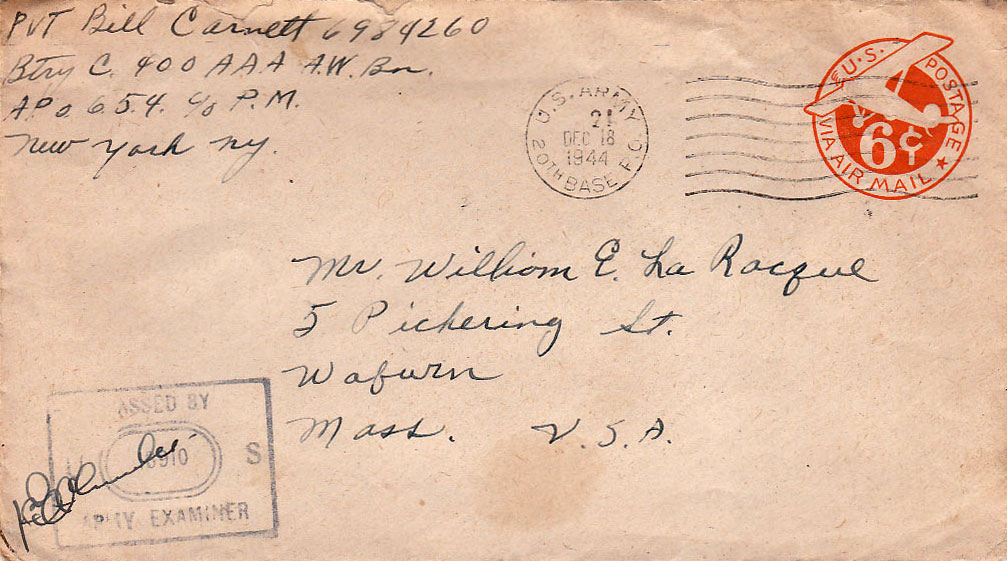 PVT Bill Carnett 6984260
Btry C. 400 AAA A.W. Bn.
APO 654. c/o P.M.
New York NY.
U.S. ARMY
21
DEC 18
1944
20TH BASE P.O.
U.S. POSTAGE
6¢
VIA AIR MAIL
Mr. William E. La Racque
5 Pickering St.
Woburn
Mass. U.S.A.
ASSED BY
S
ARMY EXAMINER